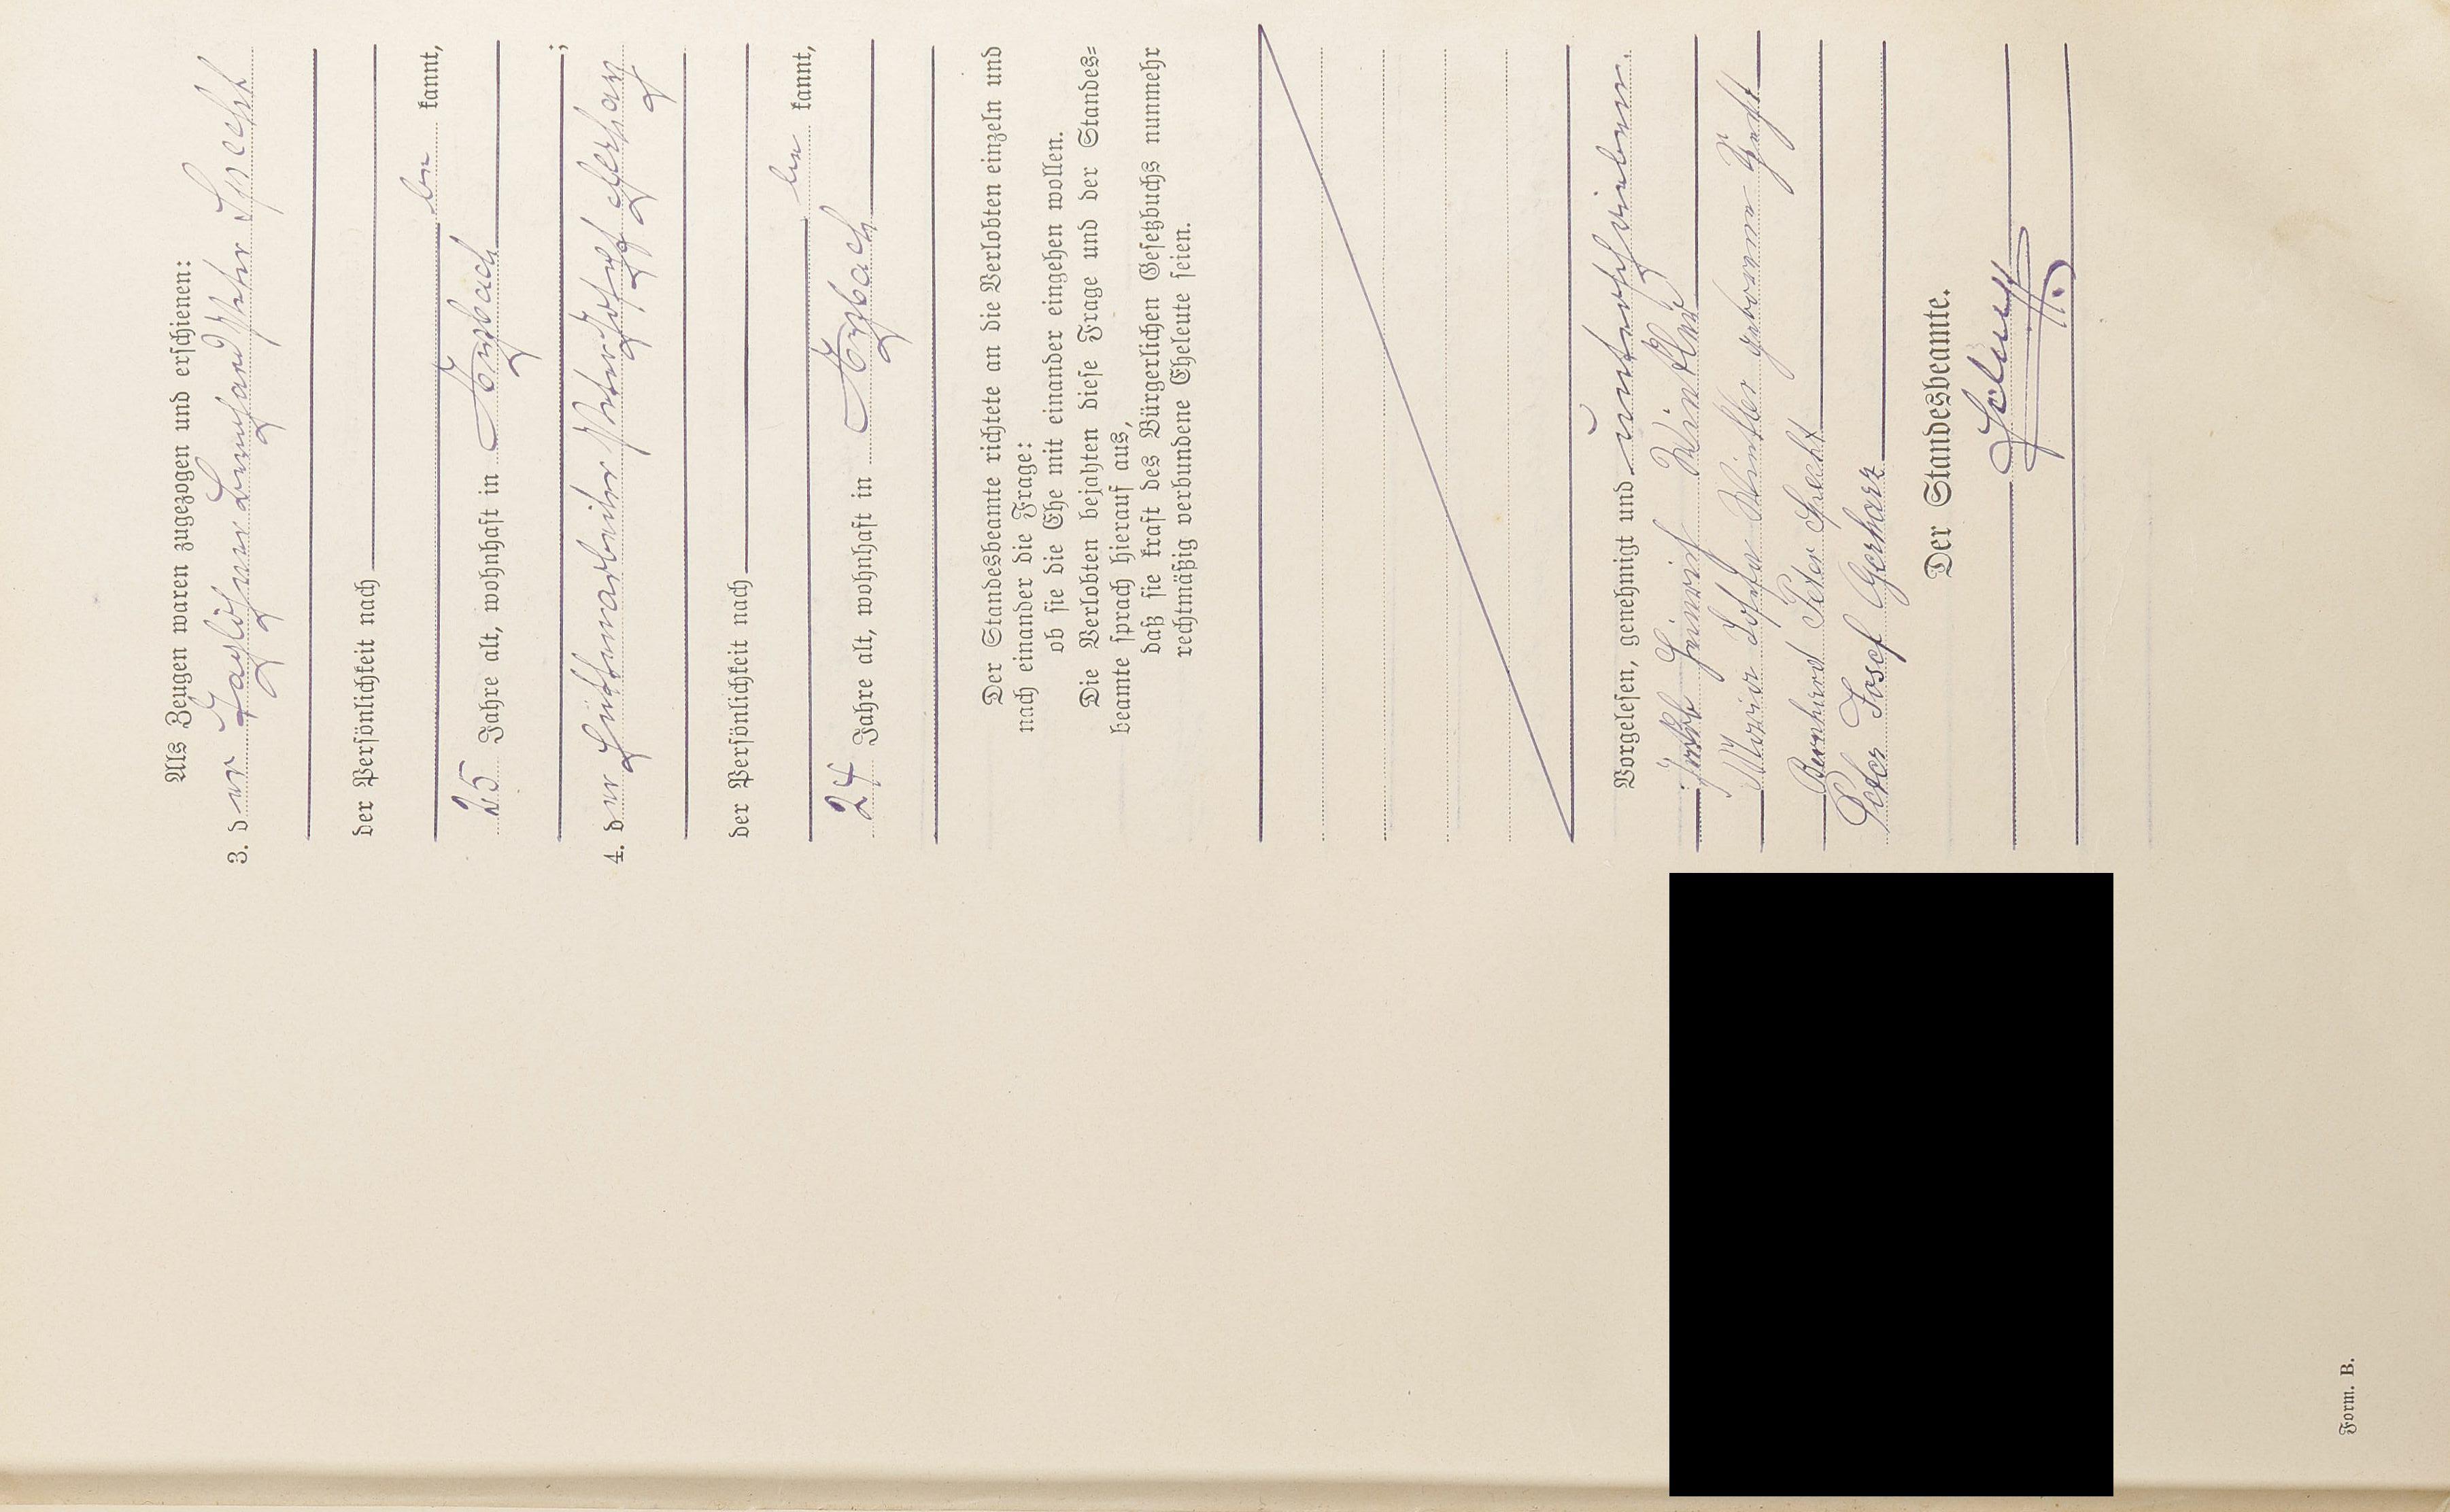 Als Zeugen waren zugezogen und erschienen:
3. der Taglöhner Bernhard Peter Specht
der Persönlichkeit nach
be kannt,
25 Jahre alt, wohnhaft in
4. der Hüttenarbeiter Peter Josef Gerharz
;
der Persönlichkeit nach
be kannt,
24 Jahre alt, wohnhaft in
Der Standesbeamte richtete an die Verlobten einzeln und
nach einander die Frage:
ob sie die Ehe mit einander eingehen wollen.
Die Verlobten bejahten diese Frage und der Standes=
beamte sprach hierauf aus,
daß sie kraft des Bürgerlichen Gesetzbuchs nunmehr
rechtmäßig verbundene Eheleute seien.
Vorgelesen, genehmigt und unterschrieben.
Heinrich Winkler
Maria Winkler geborene Specht
Bernhard Peter Specht
Peter Josef Gerharz
Der Standesbeamte.
Form. B.